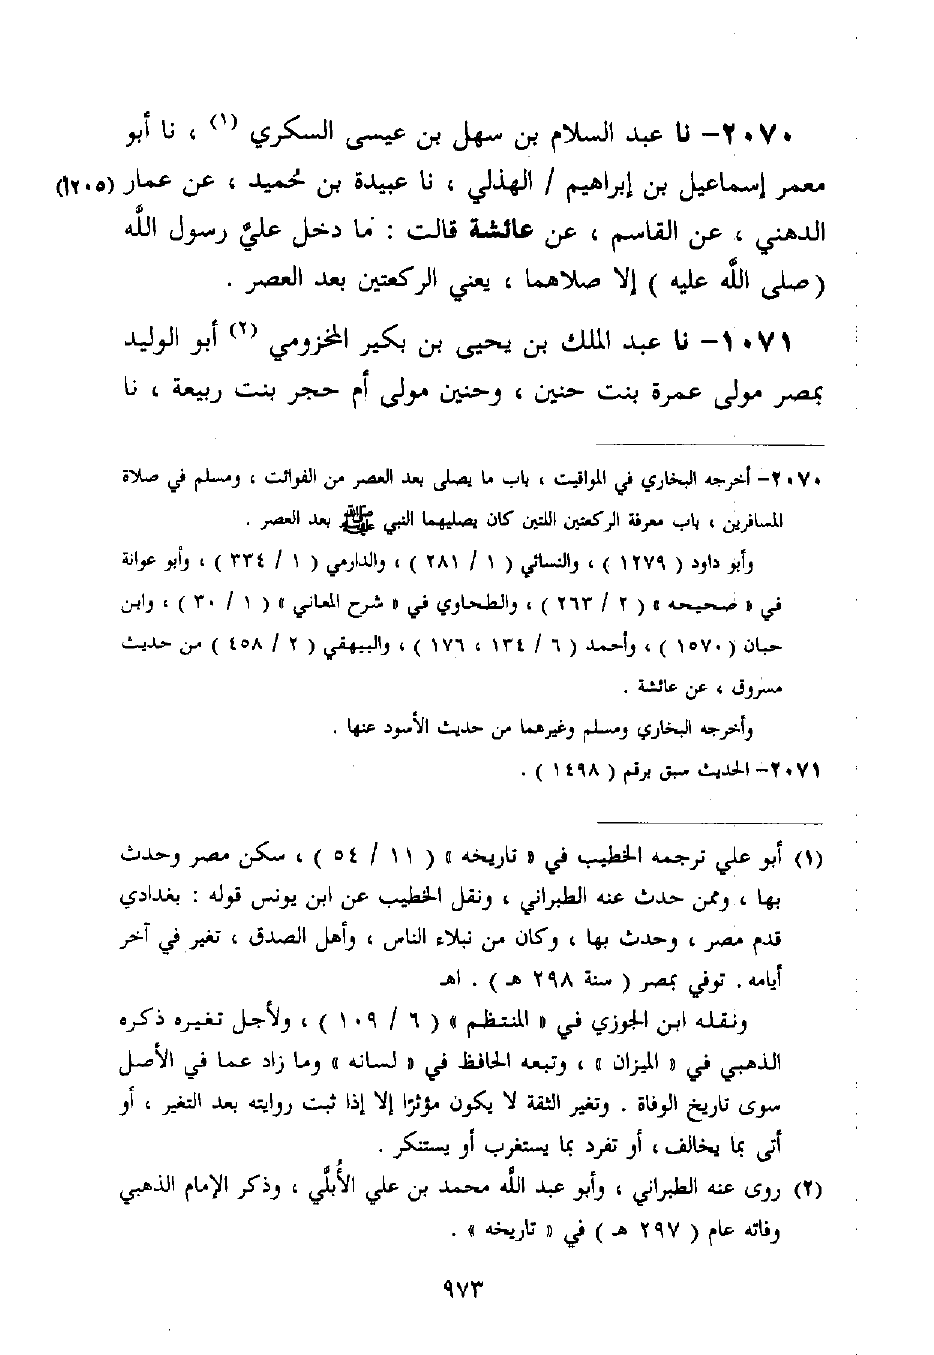 ٢٠٧٠- نا عبد السلام بن سهل بن عيسى السكري (١) ، نا أبو
معمر إسماعيل بن إبراهيم / الهذلي ، نا عبيدة بن حُميد ، عن عمار (١٢٠٥)
الدهني ، عن القاسم ، عن عائشة قالت : مَا دخل عليَّ رسول اللَّه
( صلى اللَّه عليه ) إلا صلاهما ، يعني الركعتين بعد العصر .
١٠٧١- نا عبد الملك بن يحيى بن بكير المخزومي (٢) أبو الوليد
بمصر مولى عمرة بنت حنين ، وحنين مولى أم حجر بنت ربيعة ، نا
٢٠٧٠- أخرجه البخاري في المواقيت ، باب ما يصلى بعد العصر من الفوائت ، ومسلم في صلاة
المسافرين ، باب معرفة الركعتين اللتين كان يصليهما النبي ﷺ بعد العصر .
وأبو داود ( ١٢٧٩ ) ، والنسائي ( ١ / ٢٨١ ) ، والدارمي ( ١ / ٣٣٤ ) ، وأبو عوانة
في « صحيحه » ( ٢ / ٢٦٣ ) ، والطحاوي في « شرح المعاني » ( ١ / ٣٠ ) ، وابن
حبان ( ١٥٧٠ ) ، وأحمد ( ٦ / ١٣٤ ، ١٧٦ ) ، والبيهقي ( ٢ / ٤٥٨ ) من حديث
مسروق ، عن عائشة .
وأخرجه البخاري ومسلم وغيرهما من حديث الأسود عنها .
٢٠٧١- الحديث سبق برقم ( ١٤٩٨ ) .
(١) أبو علي ترجمه الخطيب في « تاريخه » ( ١١ / ٥٤ ) ، سكن مصر وحدث
بها ، وممن حدث عنه الطبراني ، ونقل الخطيب عن ابن يونس قوله : بغدادي
قدم مصر ، وحدث بها ، وكان من نبلاء الناس ، وأهل الصدق ، تغير في آخر
أيامه . توفي بمصر ( سنة ٢٩٨ هـ ) . اهـ
ونقله ابن الجوزي في « المنتظم » ( ٦ / ١٠٩ ) ، ولأجل تغيره ذكره
الذهبي في « الميزان » ، وتبعه الحافظ في « لسانه » وما زاد عما في الأصل
سوى تاريخ الوفاة . وتغير الثقة لا يكون مؤثرًا إلا إذا ثبت روايته بعد التغير ، أو
أتى بما يخالف ، أو تفرد بما يستغرب أو يستنكر .
(٢) روى عنه الطبراني ، وأبو عبد اللَّه محمد بن علي الأُبُلِّي ، وذكر الإمام الذهبي
وفاته عام ( ٢٩٧ هـ ) في « تاريخه » .
٩٧٣